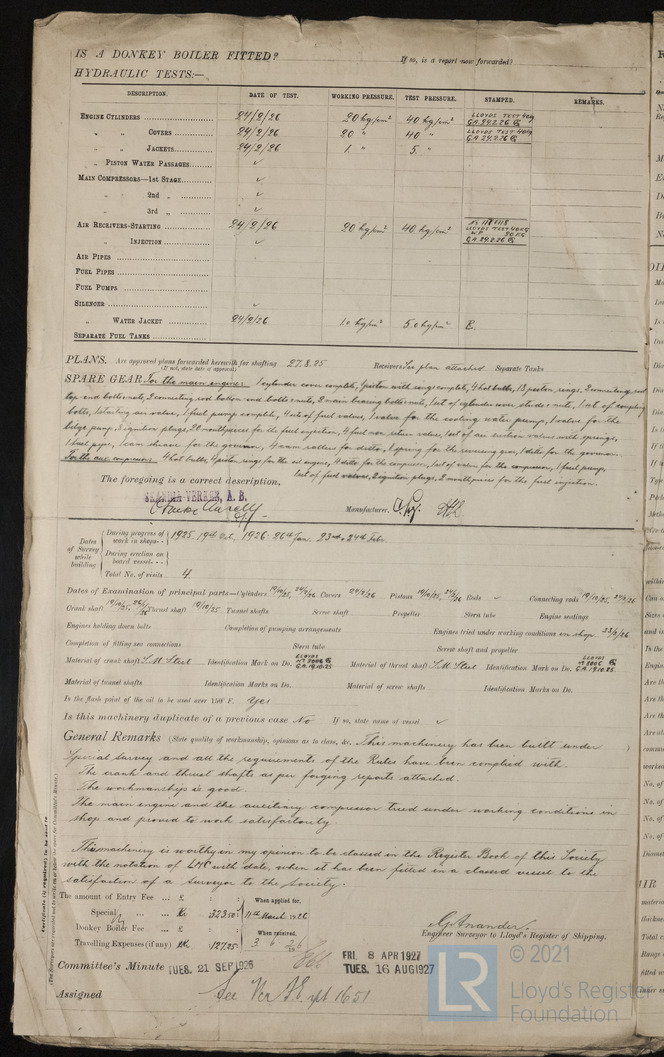 IS A DONKEY BOILER FITTED? If so, is a report now forwarded?
HYDRAULIC TESTS:—
DESCRIPTION. DATE OF TEST. WORKING PRESSURE. TEST PRESSURE. STAMPED. REMARKS.
ENGINE CYLINDERS 24/2/26 20 kg/cm² 40 kg/cm² LLOYDS TEST 40kg G.A. 24.2.26
" " COVERS 24/2/26 20 " 40 " LLOYDS TEST 40kg G.A. 24.2.26
" " JACKETS 24/2/26 1 " 5 "
" PISTON WATER PASSAGES ✓
MAIN COMPRESSORS—1st STAGE ✓
" " 2nd " ✓
" " 3rd " ✓
AIR RECEIVERS-STARTING 24/2/26 20 kg/cm² 40 kg/cm² No 117+118 LLOYDS TEST 40 KG W.P. 20 KG G.A. 24.2.26
" INJECTION ✓
AIR PIPES
FUEL PIPES
FUEL PUMPS
SILENCER ✓
" WATER JACKET 24/2/26 1.0 kg/cm² 5.0 kg/cm²
SEPARATE FUEL TANKS
PLANS. Are approved plans forwarded herewith for shafting 27.8.25 Receivers See plan attached Separate Tanks
(If not, state date of approval)
SPARE GEAR For the main engine: 1 cylinder cover complete, 1 piston with rings complete, 4 hot bulbs, 13 piston rings, 2 connecting rod
top end bolts+nuts, 2 connecting rod bottom end bolts+nuts, 2 main bearing bolts+nuts, 1 set of cylinder cover studs+nuts, 1 set of coupling
bolts, 1 starting air valve, 1 fuel pump complete, 4 sets of fuel valves, 1 valve for the cooling water pump, 1 valve for the
bilge pump, 8 ignition plugs, 20 mouthpieces for the fuel injection, 4 fuel non return valves, 1 set of air suction valves with springs,
1 fuel pipe, 1 cam for the governor, 4 cam rollers for ditto, 1 spring for the governor, 1 ditto for the governor.
For the aux. compressor: 4 hot bulbs, 4 piston rings for the oil engine, 4 ditto for the compressor, 1 set of valves for the compressor, 1 fuel pump,
1 set of fuel valves, 2 ignition plugs, 2 mouthpieces for the fuel injection.
The foregoing is a correct description,
A. B.
Manufacturer.
Dates of Survey while building
During progress of work in shops 1925. 19th Oct. 1926. 26th Jan. 23rd + 24th Feb.
During erection on board vessel
Total No. of visits 4
Dates of Examination of principal parts—Cylinders 19/10/25, 24/2/26 Covers 24/2/26 Pistons 19/10/25, 24/2/26 Rods ✓ Connecting rods 19/10/25, 24/2/26
Crank shaft 19/10/25, 26/1/26 Thrust shaft 19/10/25 Tunnel shafts Screw shaft Propeller Stern tube Engine seatings
Engines holding down bolts Completion of pumping arrangements Engines tried under working conditions in shop 23/2/26
Completion of fitting sea connections Stern tube Screw shaft and propeller
Material of crank shaft S.M. Steel Identification Mark on Do. LLOYDS No 8006 G.A. 19.10.25 Material of thrust shaft S.M. Steel Identification Mark on Do. LLOYDS No 8006 G.A. 19.10.25.
Material of tunnel shafts Identification Marks on Do. Material of screw shafts Identification Marks on Do.
Is the flash point of the oil to be used over 150° F. Yes
Is this machinery duplicate of a previous case No If so, state name of vessel ✓
General Remarks (State quality of workmanship, opinions as to class, &c. This machinery has been built under
Special survey and all the requirements of the Rules have been complied with.
The crank and thrust shafts as per forging reports attached.
The workmanship is good.
The main engine and the auxiliary compressor tried under working conditions in
shop and proved to work satisfactorily.
This machinery is worthy in my opinion to be classed in the Register Book of this Society
with the notation of LMC with date, when it has been fitted in a classed vessel to the
satisfaction of a Surveyor to the Society.
The amount of Entry Fee £ : : When applied for,
Special Kr. 323.50 : 11th March 1926
Donkey Boiler Fee £ : : When received,
Travelling Expenses (if any) Kr. 127.25 : 3.6.26
Engineer Surveyor to Lloyd's Register of Shipping.
Committee's Minute TUES. 21 SEP 1926 FRI. 8 APR 1927
TUES. 16 AUG 1927
Assigned See
© 2021
LR Lloyd's Register
Foundation